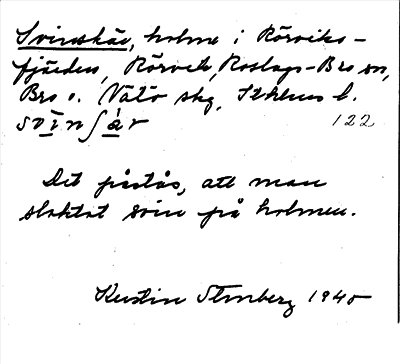 Svinskär, holme i Rörviks-
fjärden, Rörvik, Roslags-Bro sn,
Bro o. Vätö skg, Sthlms l.
svinʃär 122
Det påstås, att man
slaktat svin på holmen.
Kerstin Strnberg 1945